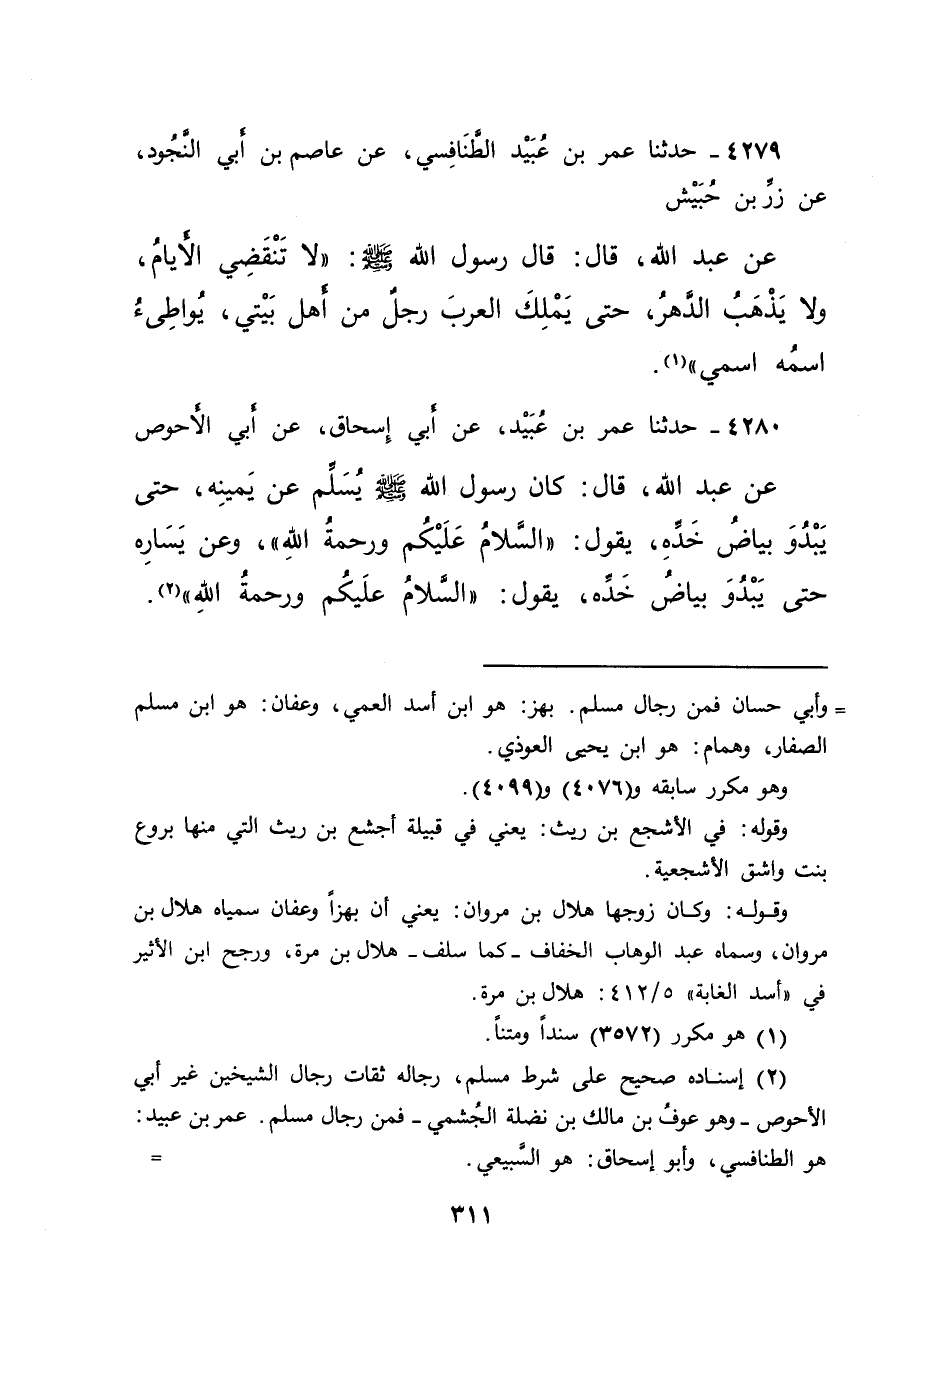 ٤٢٧٩ ـ حدثنا عمر بن عُبَيْد الطَّنَافِسي، عن عاصم بن أَبي النَّجُود،
عن زِرِّ بن حُبَيْش
عن عبد الله، قال: قال رسول الله ﷺ: «لا تَنْقَضِي الأَيامُ،
ولا يَذْهَبُ الدَّهرُ، حتى يَمْلِكَ العربَ رجلٌ من أَهل بَيْتي، يُواطِىءُ
اسمُه اسمي»(١).
٤٢٨٠ ـ حدثنا عمر بن عُبَيْد، عن أَبي إِسحاق، عن أَبي الأَحوص
عن عبد الله، قال: كان رسول الله ﷺ يُسَلِّم عن يَمينِه، حتى
يَبْدُوَ بياضُ خَدِّهِ، يقول: «السَّلامُ عَلَيْكُم ورحمةُ اللهِ»، وعن يَسَارِه
حتى يَبْدُوَ بياضُ خَدِّه، يقول: «السَّلامُ عليكُم ورحمةُ اللهِ»(٢).
= وأبي حسان فمن رجال مسلم. بهز: هو ابن أسد العمي، وعفان: هو ابن مسلم
الصفار، وهمام: هو ابن يحيى العوذي.
وهو مكرر سابقه و(٤٠٧٦) و(٤٠٩٩).
وقوله: في الأشجع بن ريث: يعني في قبيلة أجشع بن ريث التي منها بروع
بنت واشق الأشجعية.
وقوله: وكان زوجها هلال بن مروان: يعني أن بهزاً وعفان سمياه هلال بن
مروان، وسماه عبد الوهاب الخفاف ـ كما سلف ـ هلال بن مرة، ورجح ابن الأثير
في «أسد الغابة» ٤١٢/٥: هلال بن مرة.
(١) هو مكرر (٣٥٧٢) سنداً ومتناً.
(٢) إسناده صحيح على شرط مسلم، رجاله ثقات رجال الشيخين غير أبي
الأحوص ـ وهو عوفُ بن مالك بن نضلة الجُشمي ـ فمن رجال مسلم. عمر بن عبيد:
هو الطنافسي، وأبو إسحاق: هو السَّبيعي. =
٣١١